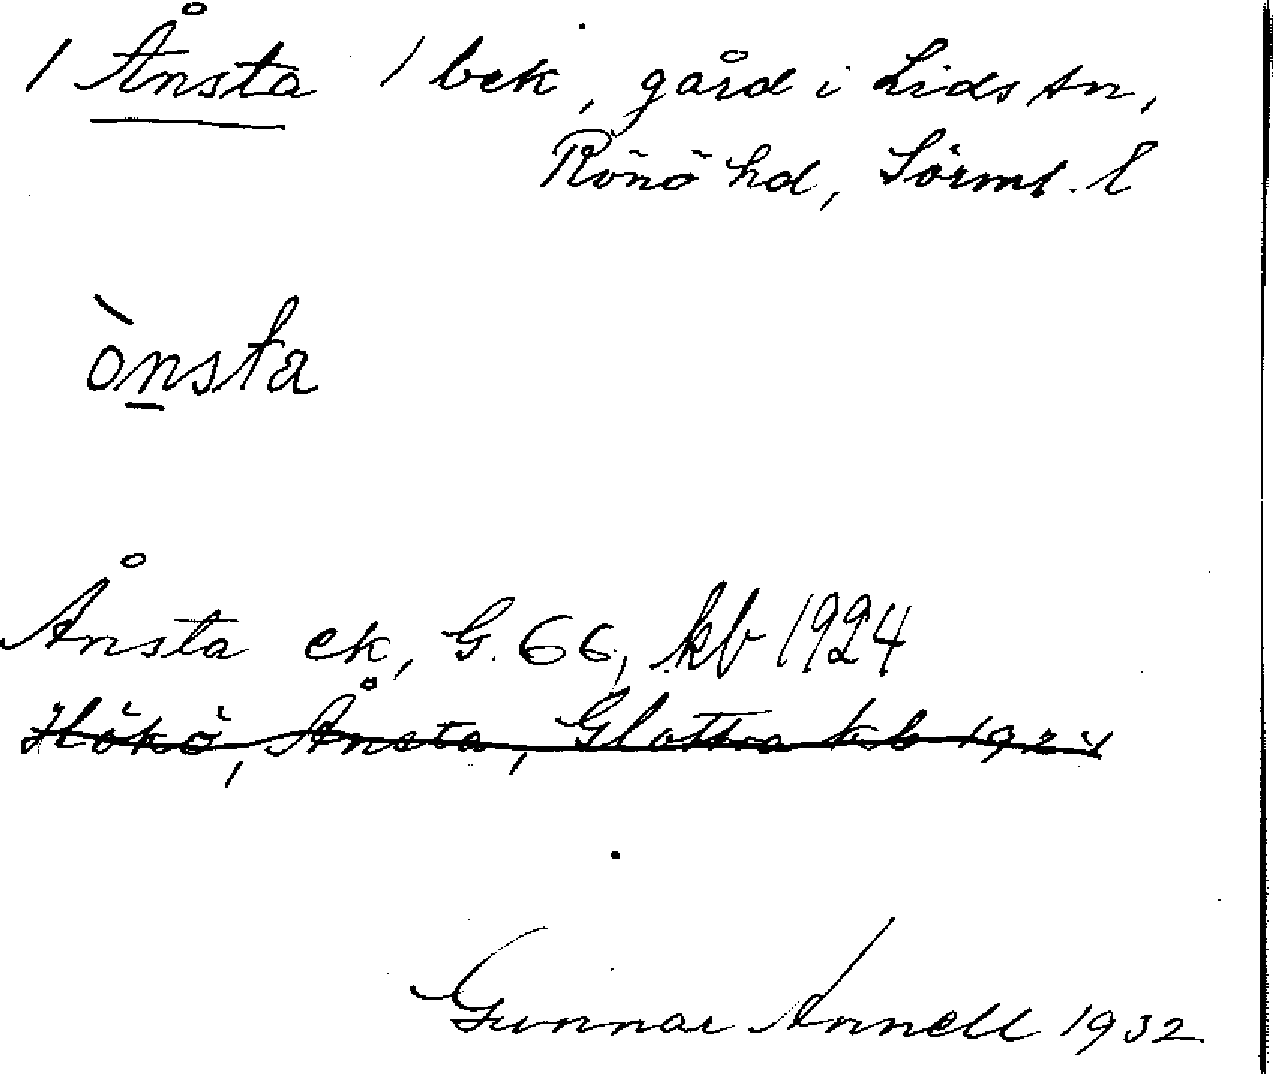 / Ånsta / bek, gård i Lids sn,
Rönö hd, Sörml. l
ònsta
Ånsta ek, G. 66, kb 1924
Hökö, Ånsta, Glottra kb 1924
Gunnar Annell 1932